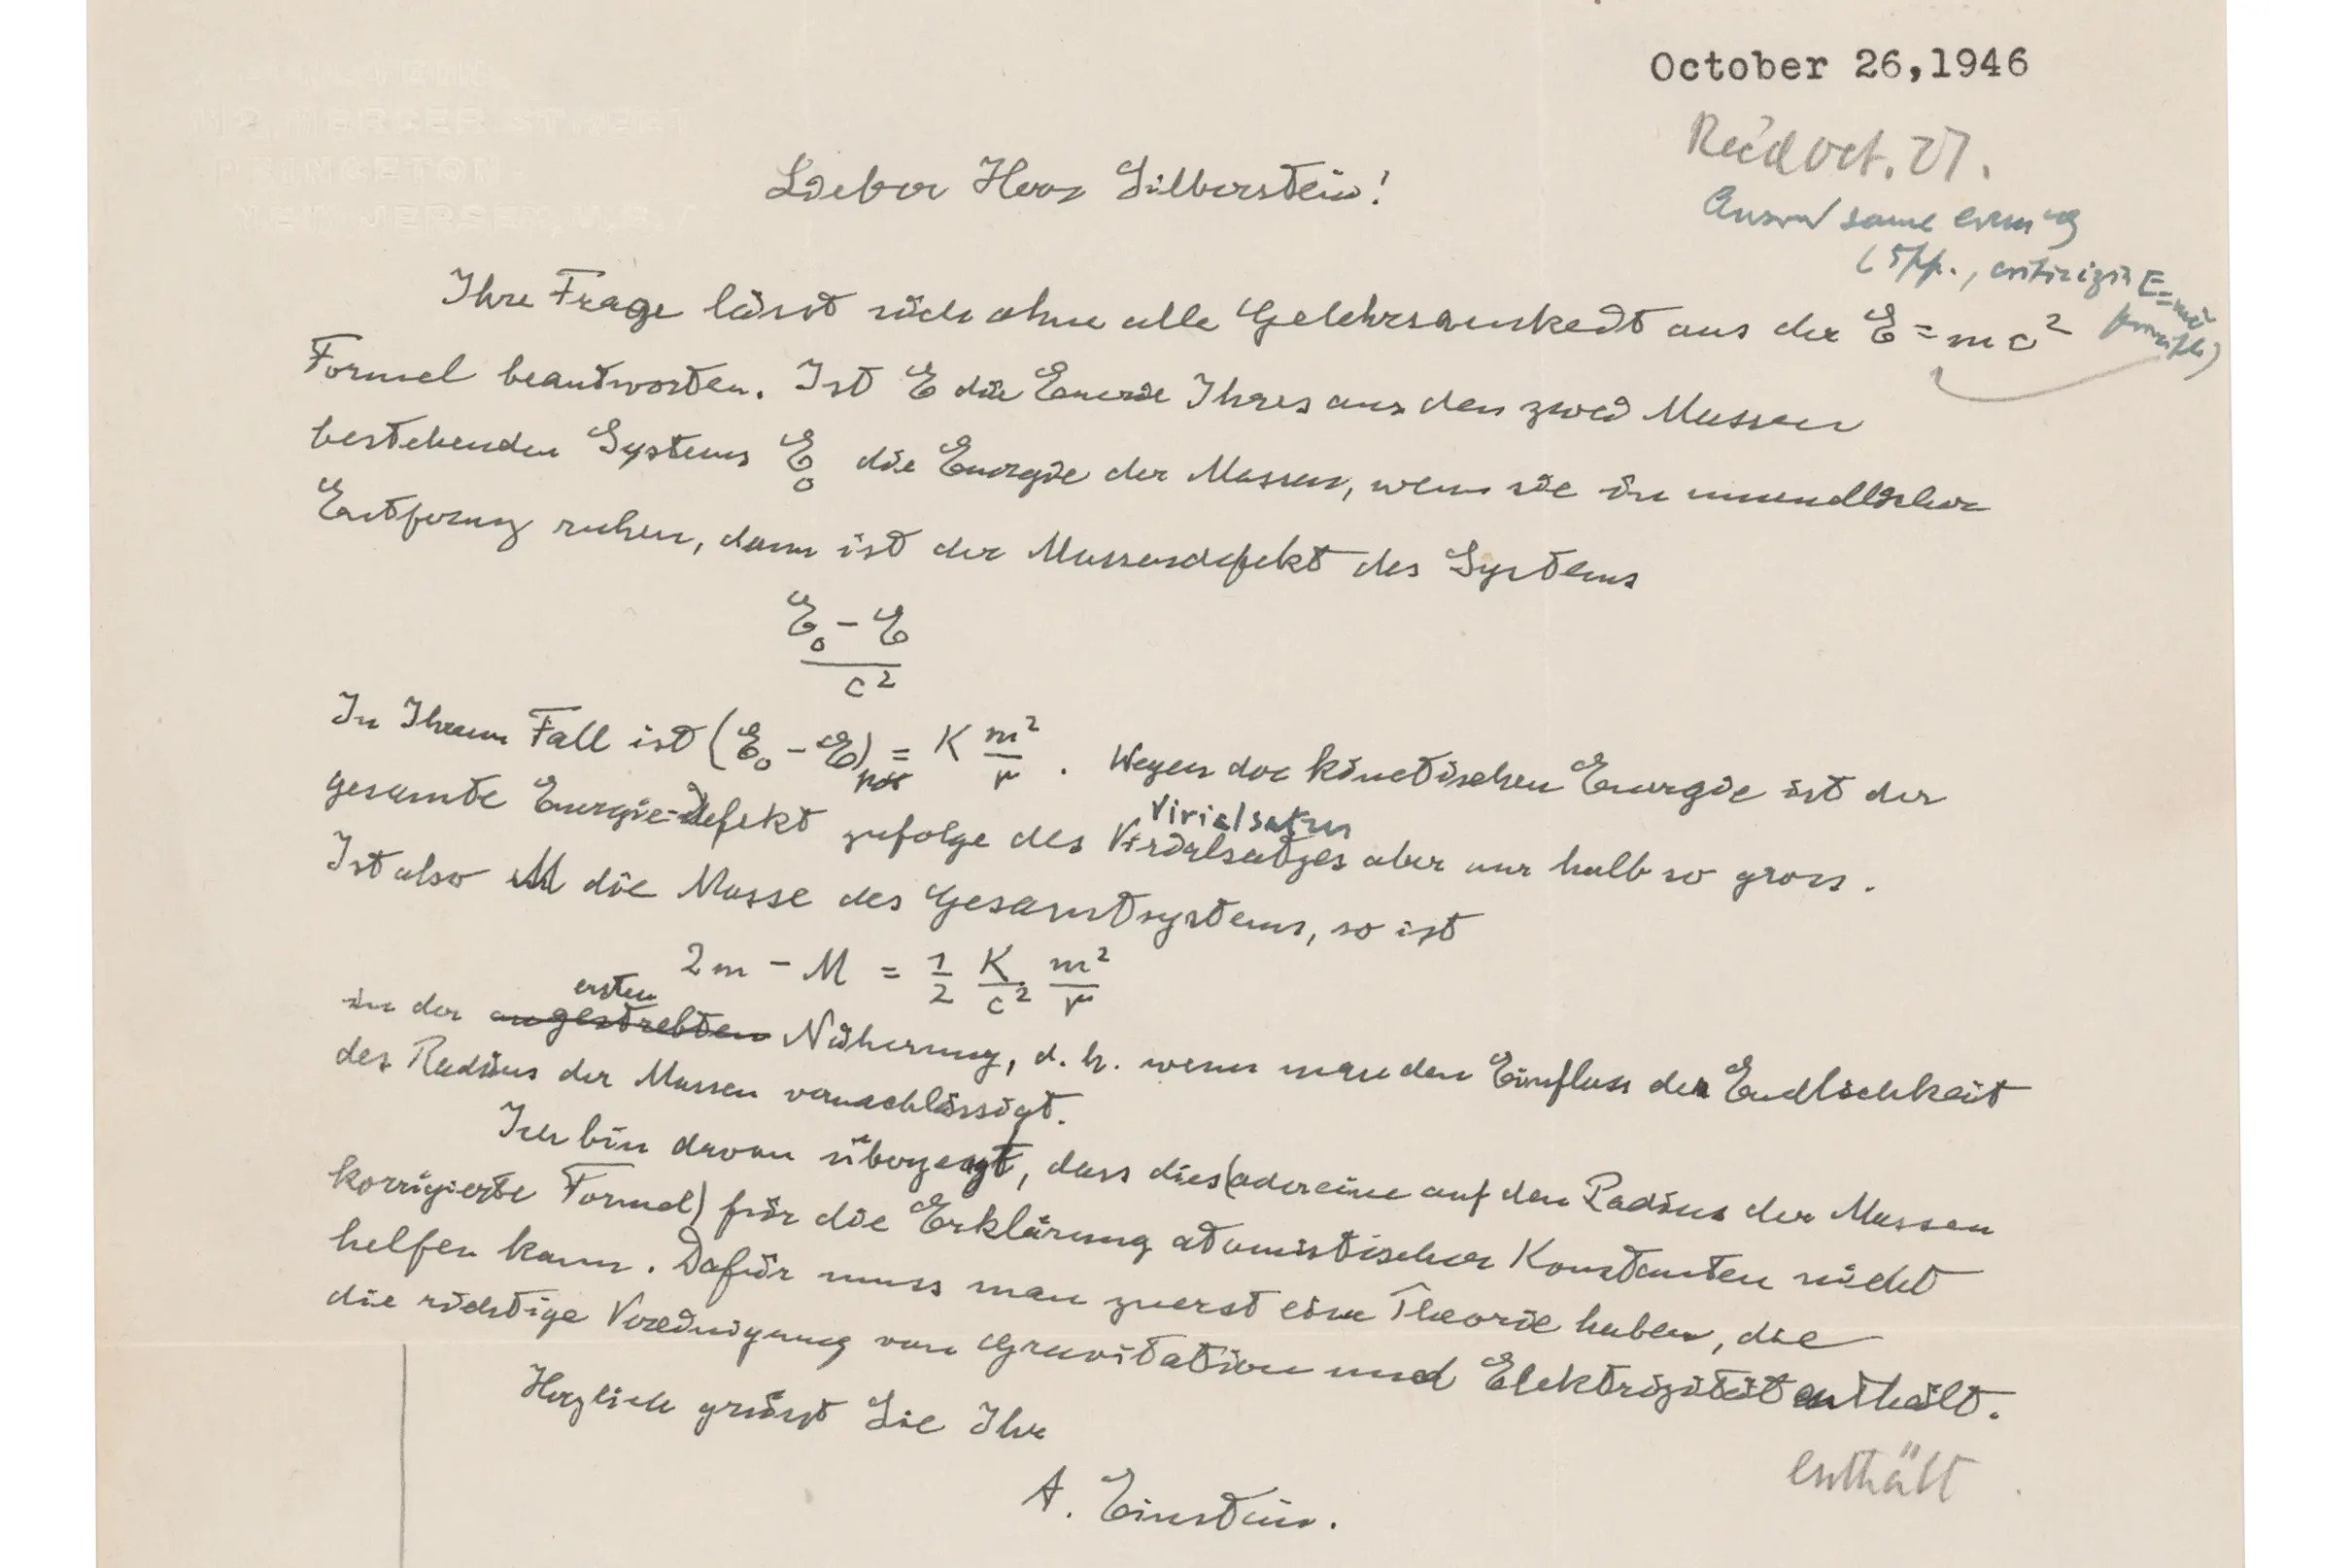 October 26,1946
Rec'd Oct. 27.
112, MERCER STREET
PRINCETON
NEW JERSEY, U.S.A.
Lieber Herr Silberstein!
same evening
(5pp., E=mc²
Ihre Frage lässt sich ohne alle Gelehrsamkeit aus der E = mc²
Formel beantworten. Ist E die Energie Ihres aus den zwei Massen
bestehenden Systems E₀ die Energie der Massen, wenn sie in unendlicher
Entfernung ruhen, dann ist der Massendefekt des Systems
E₀ – E
c²
In Ihrem Fall ist (E₀ – E)pot = K m²/r . Wegen der kinetischen Energie ist der
Virialsatzes
gesamte Energie-Defekt zufolge des Virialsatzes aber nur halb so gross.
Ist also M die Masse des Gesamtsystems, so ist
2m – M = 1/2 K/c² m²/r
ersten
in der angestrebten Näherung, d. h. wenn man den Einfluss der Endlichkeit
des Radius der Massen vernachlässigt.
Ich bin davon überzeugt, dass dies (oder eine auf den Radius der Massen
korrigierte Formel) für die Erklärung atomistischer Konstanten nicht
helfen kann. Dafür muss man zuerst eine Theorie haben, die
die richtige Vereinigung von Gravitation und Elektrizität enthält.
enthält
Herzlich grüsst Sie Ihr
A. Einstein.